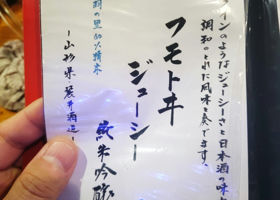 インのようなジューシーさと日本酒の味
調和のとれた風味を奏でます。
フモトヰ
ジューシー
純米吟醸
羽の里 60%精米
－山形県 麓井酒造－